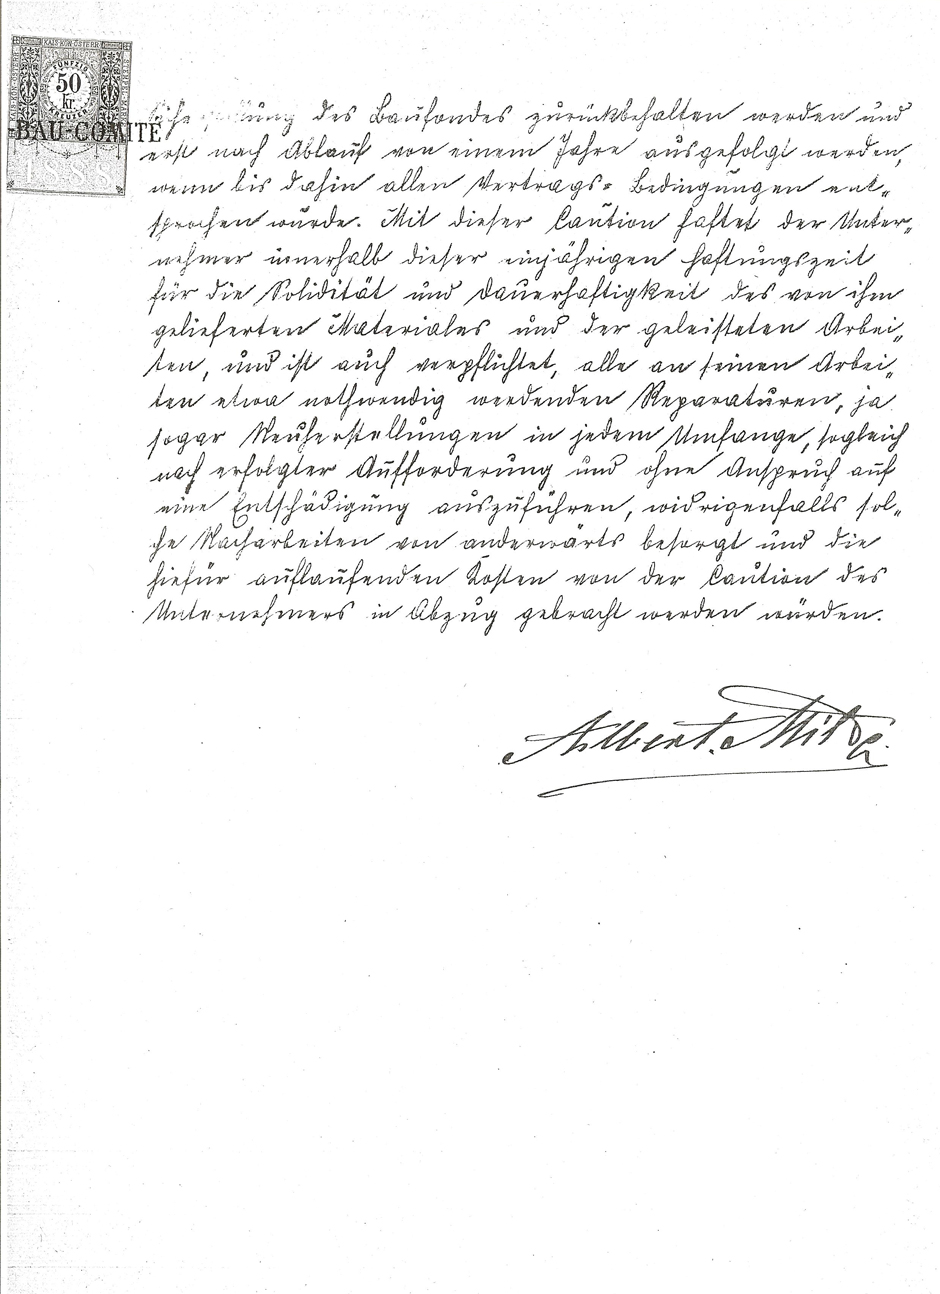 KAIS. KÖN. ÖSTERR.
FÜNFZIG
50
kr.
KREUZER
-BAU-COMITÉ
1888
des Baufondes zurückbehalten werden und
erst nach Ablauf von einem Jahre ausgefolgt werden,
wenn bis dahin allen Vertrags= Bedingungen ent„
sprochen wurde. Mit dieser Caution haftet der Unter„
nehmer innerhalb dieser einjährigen Haftungszeit
für die Solidität und Dauerhaftigkeit des von ihm
gelieferten Materiales und der geleisteten Arbei„
ten, und ist auch verpflichtet, alle an seinen Arbei„
ten etwa nothwendig werdenden Reparaturen, ja
sogar Neuherstellungen in jedem Umfange, sogleich
nach erfolgter Aufforderung und ohne Anspruch auf
eine Entschädigung auszuführen, widrigenfalls sol„
che Nacharbeiten von anderwärts besorgt und die
hiefür auflaufenden Kosten von der Caution des
Unternehmers in Abzug gebracht werden würden.
Albert Milde